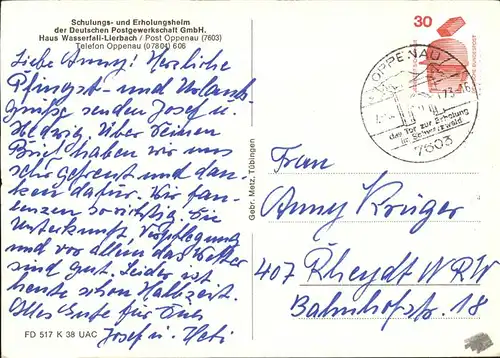 Schulungs- und Erholungsheim
der Deutschen Postgewerkschaft GmbH.
Haus Wasserfall-Lierbach / Post Oppenau (7603)
Telefon Oppenau (07804) 606
Liebe Anny! Herzliche
Pfingst- und Urlaub
grüße senden Josef u.
Hedwig. Über Deinen
Brief haben wir uns
sehr gefreut und dan-
ken dafür. Wir fau-
lenzen so richtig. Die
Unterkunft, Verpflegung
und vor allem das Wetter
sind gut. Leider ist
heute schon Halbzeit.
Alles Gute für Euch
Josef u. Hedi
FD 517 K 38 UAC
Gebr. Metz, Tübingen
30
OPPENAU
73
das Tor zur Erholung
im Schwarzwald
7603
Frau
Anny Krüger
407 Rheydt NRW
Bahnhofstr. 18